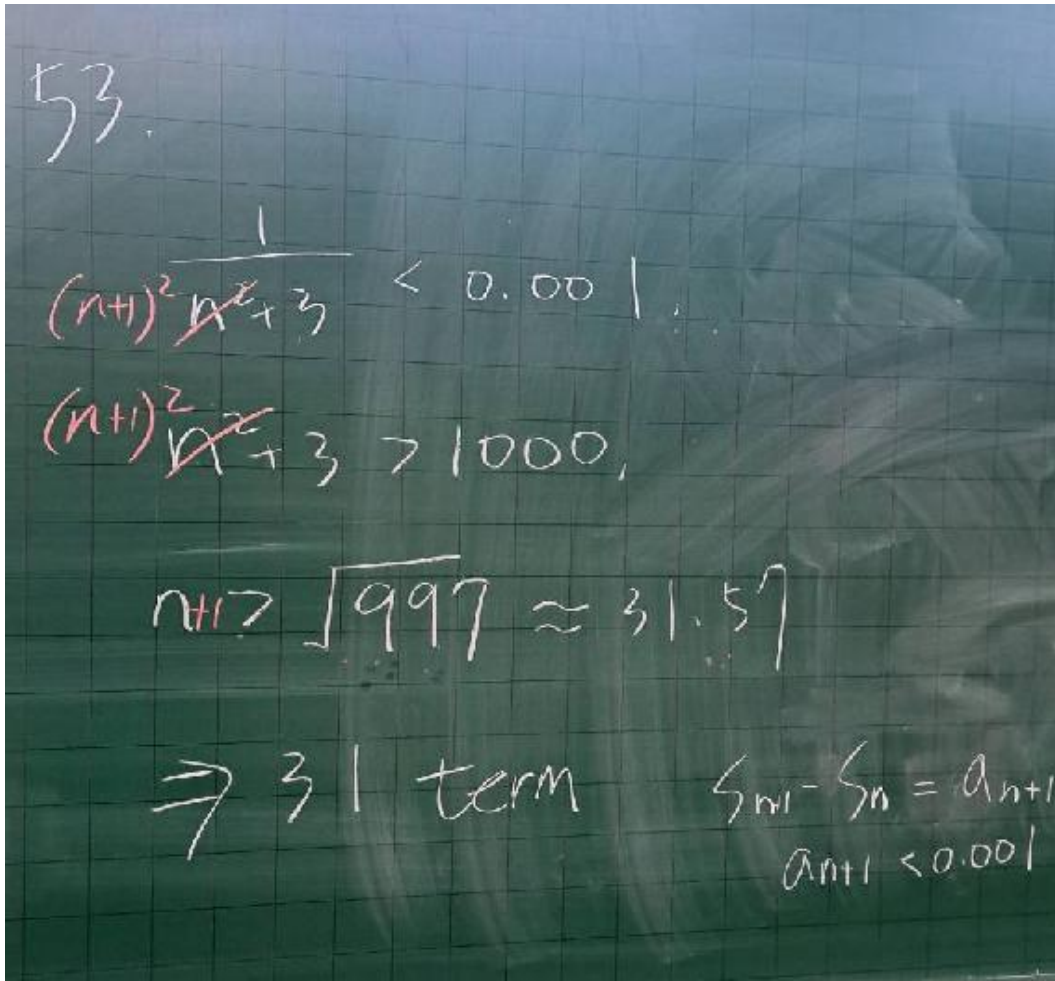 53.
1
(n+1)² n²+3 < 0.001.
(n+1)² n²+3 > 1000,
n+1 > √997 ≈ 31.57
⇒ 31 term
Sn+1 - Sn = an+1
an+1 < 0.001